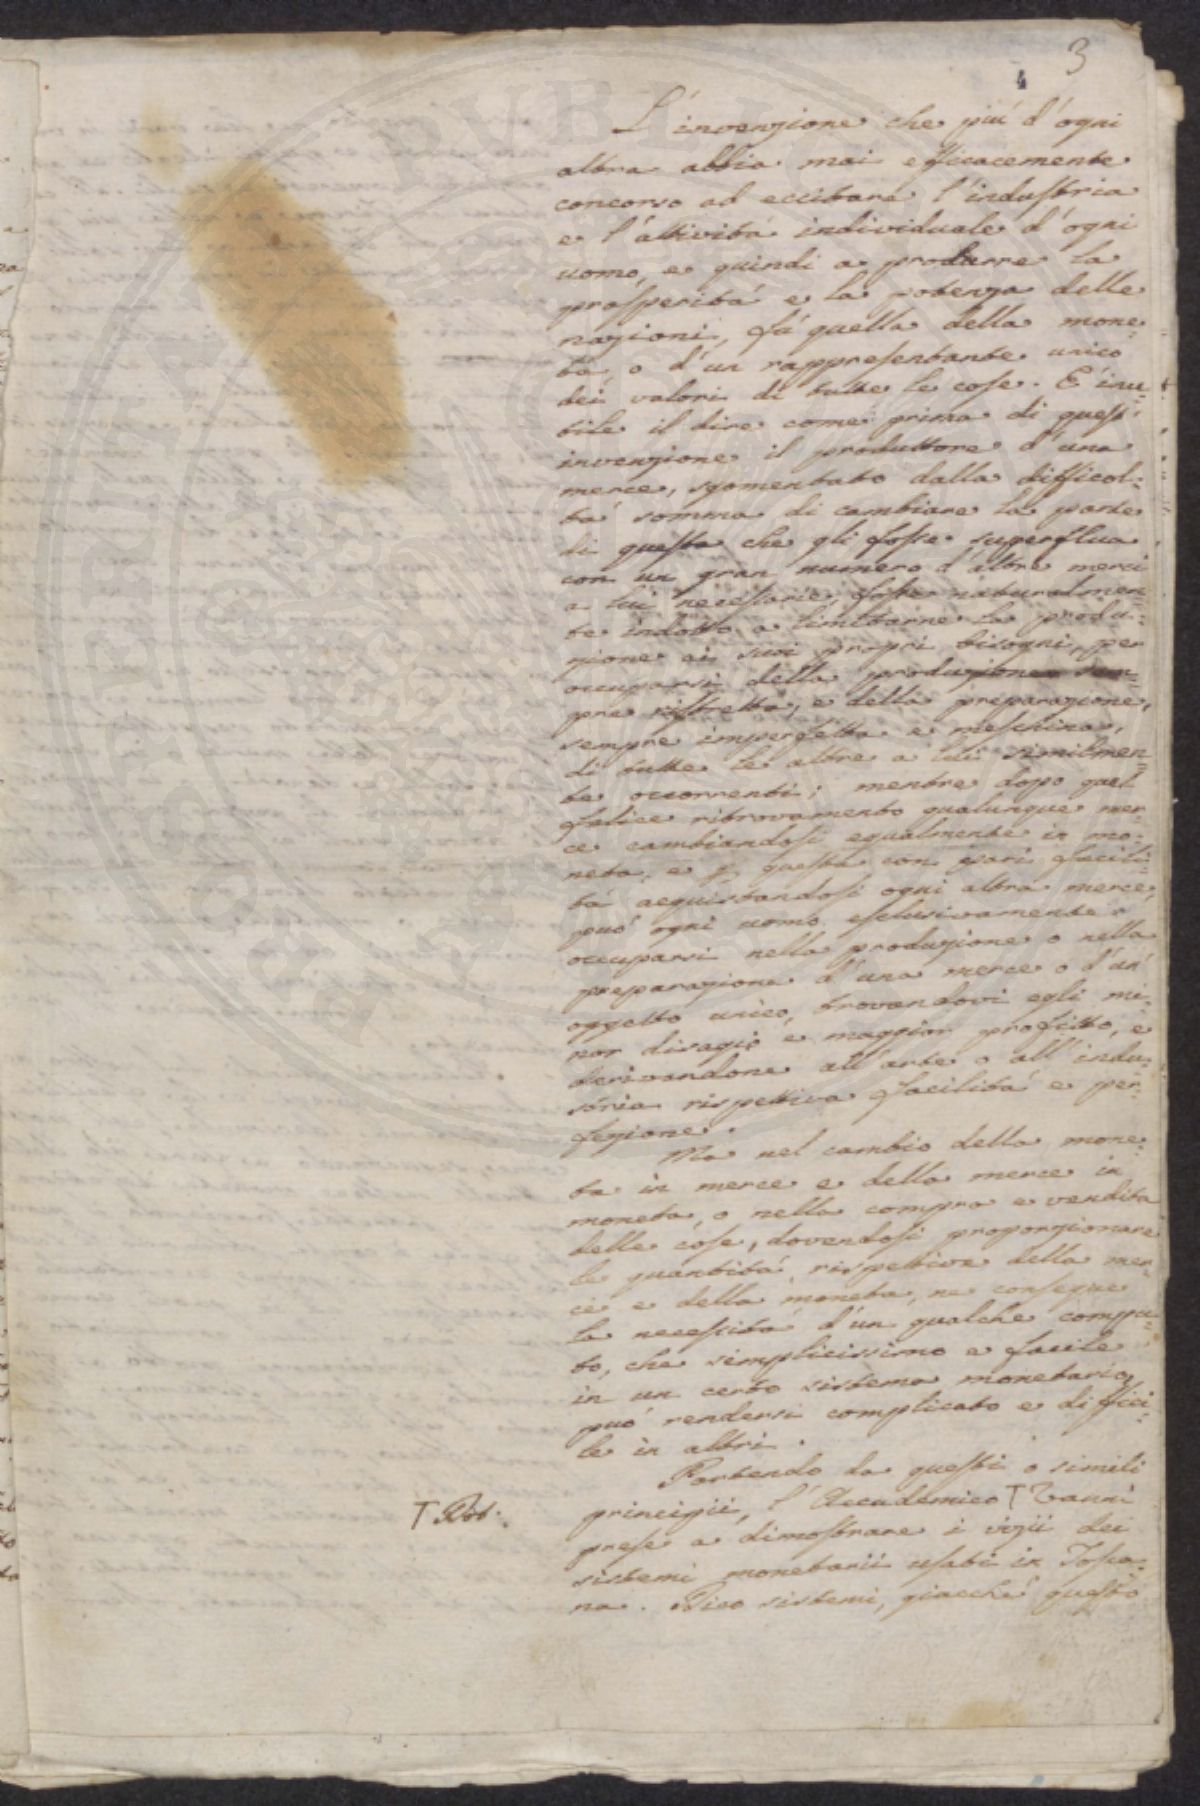 3
L'invenzione che più d'ogni
altra abbia mai efficacemente
concorso ad eccitare l'industria
e l'attività individuale d'ogni
uomo, e quindi a produrre la
prosperità e la potenza delle
nazioni, fù quella della mone=
ta o d'un rappresentante unico
dei valori di tutte le cose. È inu=
tile il dire come prima di quest'
invenzione il produttore d'una
merce, sgomentato dalla difficol=
tà somma di cambiare la parte
di questa che gli fosse superflua
con un gran numero d'altre merci
a lui necessarie, fosse naturalmen=
te indotto a limitarne la produ=
zione ai suoi propri bisogni, per
occuparsi della produzione sem=
pre ristretta, e della preparazione,
sempre imperfetta e meschina,
di tutte le altre a lui similmen=
te occorrenti; mentre dopo quel
felice ritrovamento qualunque mer=
ce cambiandosi egualmente in mo=
neta, e p questa con pari facili=
tà acquistandosi ogni altra merce,
può ogni uomo esclusivamente
occuparsi nella produzione o nella
preparazione d'una merce o d'un'
oggetto unico, trovandovi egli mi=
nor disagio e maggior profitto, e
derivandone all'arte o all'indu=
stria rispettiva facilità e per=
fezione.
Ma nel cambio della mone=
ta in merce e della merce in
moneta, o nella compra e vendita
delle cose, dovendosi proporzionare
le quantità rispettive della mer=
ce e della moneta, ne consegue
la necessità d'un qualche compu=
to, che semplicissimo e facile
in un certo sistema monetario,
può rendersi complicato e diffici=
le in altri.
Partendo da questi o simili
principii, l'Accademico T Vanni
T Dot.
prese a dimostrare i vizii dei
sistemi monetarii usati in Tosca=
na. Dico sistemi, giacchè questo